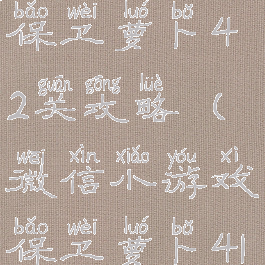 bǎo wèi luó bō
保卫萝卜4
guān gōng lüè
2关攻略（
wēi xìn xiǎo yóu xì
微信小游戏
bǎo wèi luó bō
保卫萝卜4|